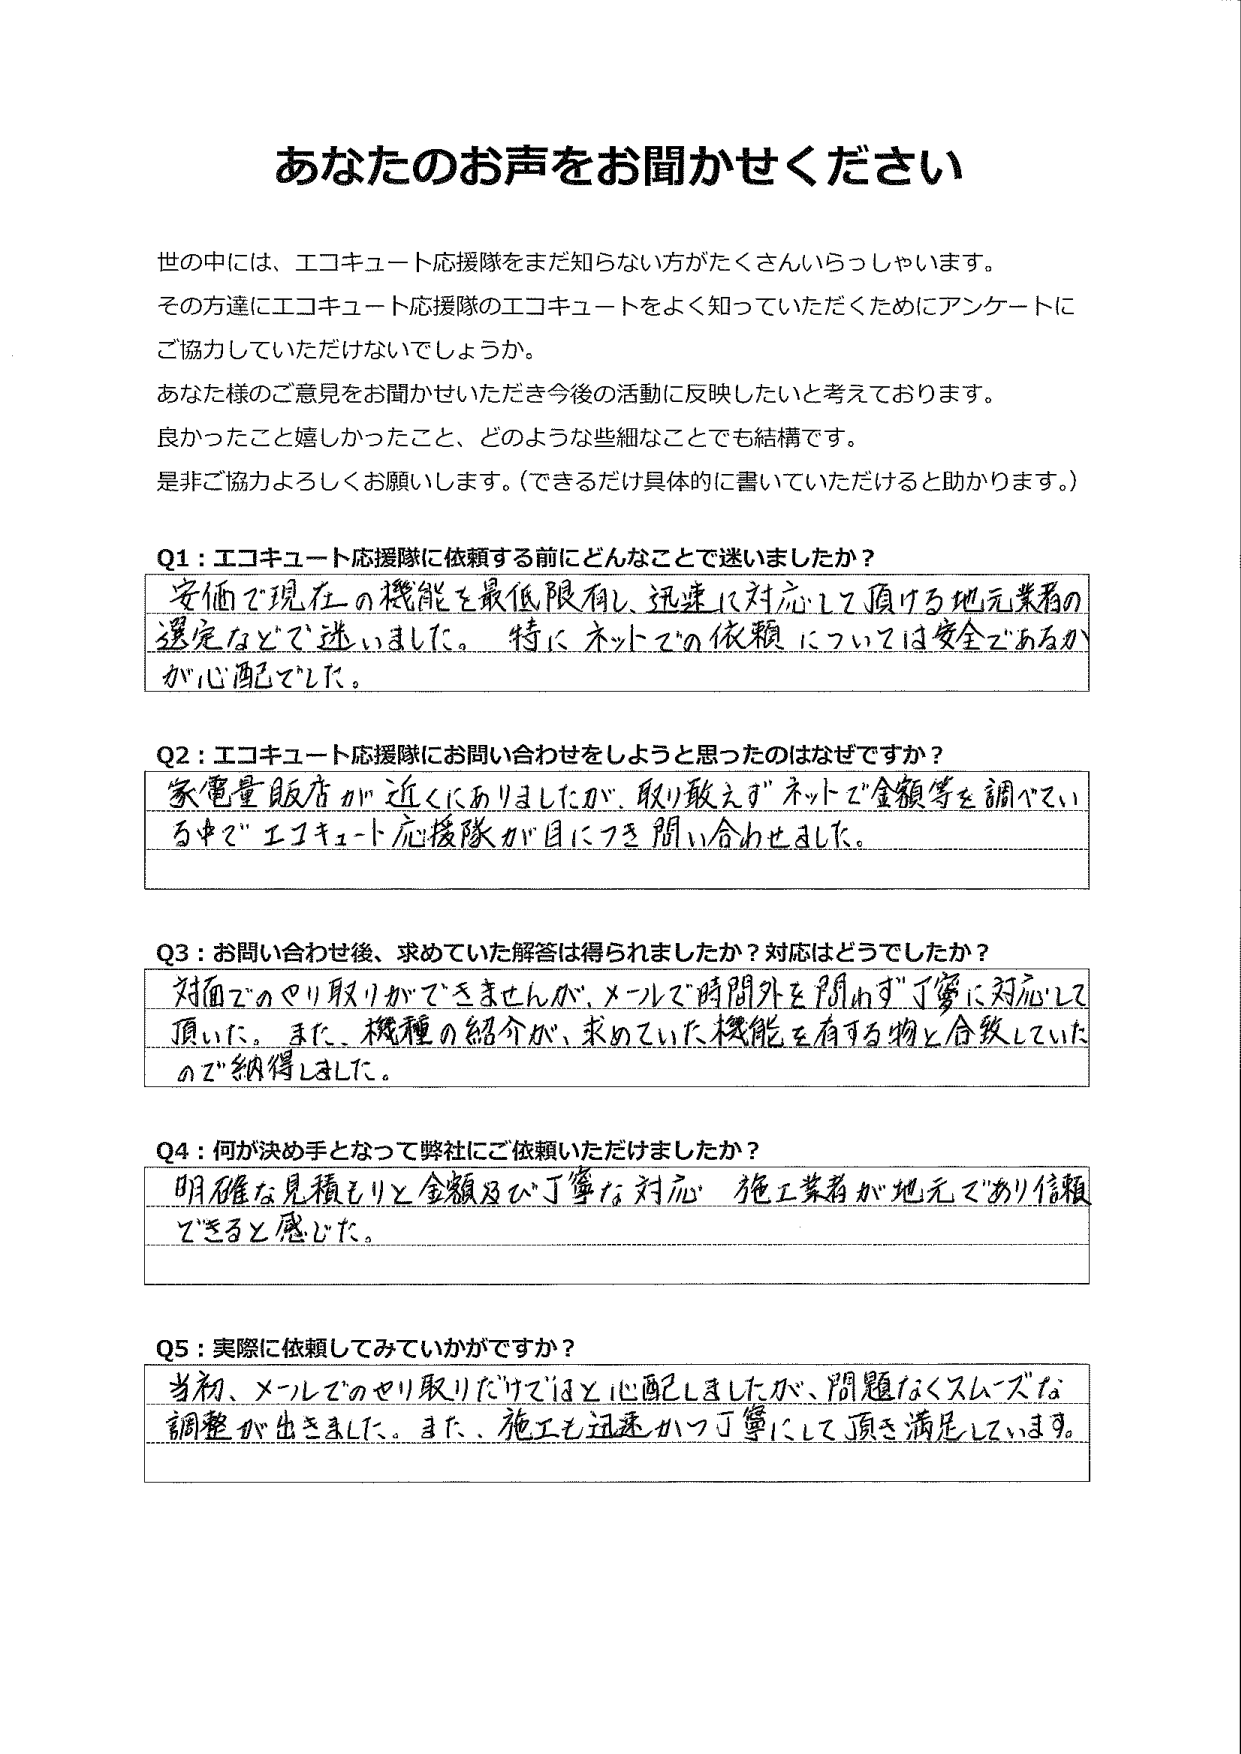 あなたのお声をお聞かせください
世の中には、エコキュート応援隊をまだ知らない方がたくさんいらっしゃいます。
その方達にエコキュート応援隊のエコキュートをよく知っていただくためにアンケートに
ご協力していただけないでしょうか。
あなた様のご意見をお聞かせいただき今後の活動に反映したいと考えております。
良かったこと嬉しかったこと、どのような些細なことでも結構です。
是非ご協力よろしくお願いします。（できるだけ具体的に書いていただけると助かります。）
Q1：エコキュート応援隊に依頼する前にどんなことで迷いましたか？
安価で現在の機能を最低限有し、迅速に対応して頂ける地元業者の
選定などで迷いました。 特にネットでの依頼については安全であるか
が心配でした。
Q2：エコキュート応援隊にお問い合わせをしようと思ったのはなぜですか？
家電量販店が近くにありましたが、取り敢えずネットで金額等を調べてい
る中でエコキュート応援隊が目につき問い合わせました。
Q3：お問い合わせ後、求めていた解答は得られましたか？対応はどうでしたか？
対面でのやり取りができませんが、メールで時間外を問わず丁寧に対応して
頂いた。また、機種の紹介が、求めていた機能を有する物と合致していた
ので納得しました。
Q4：何が決め手となって弊社にご依頼いただけましたか？
明確な見積もりと金額及び丁寧な対応 施工業者が地元であり信頼
できると感じた。
Q5：実際に依頼してみていかがですか？
当初、メールでのやり取りだけではと心配しましたが、問題なくスムーズな
調整が出きました。また、施工も迅速かつ丁寧にして頂き満足しています。